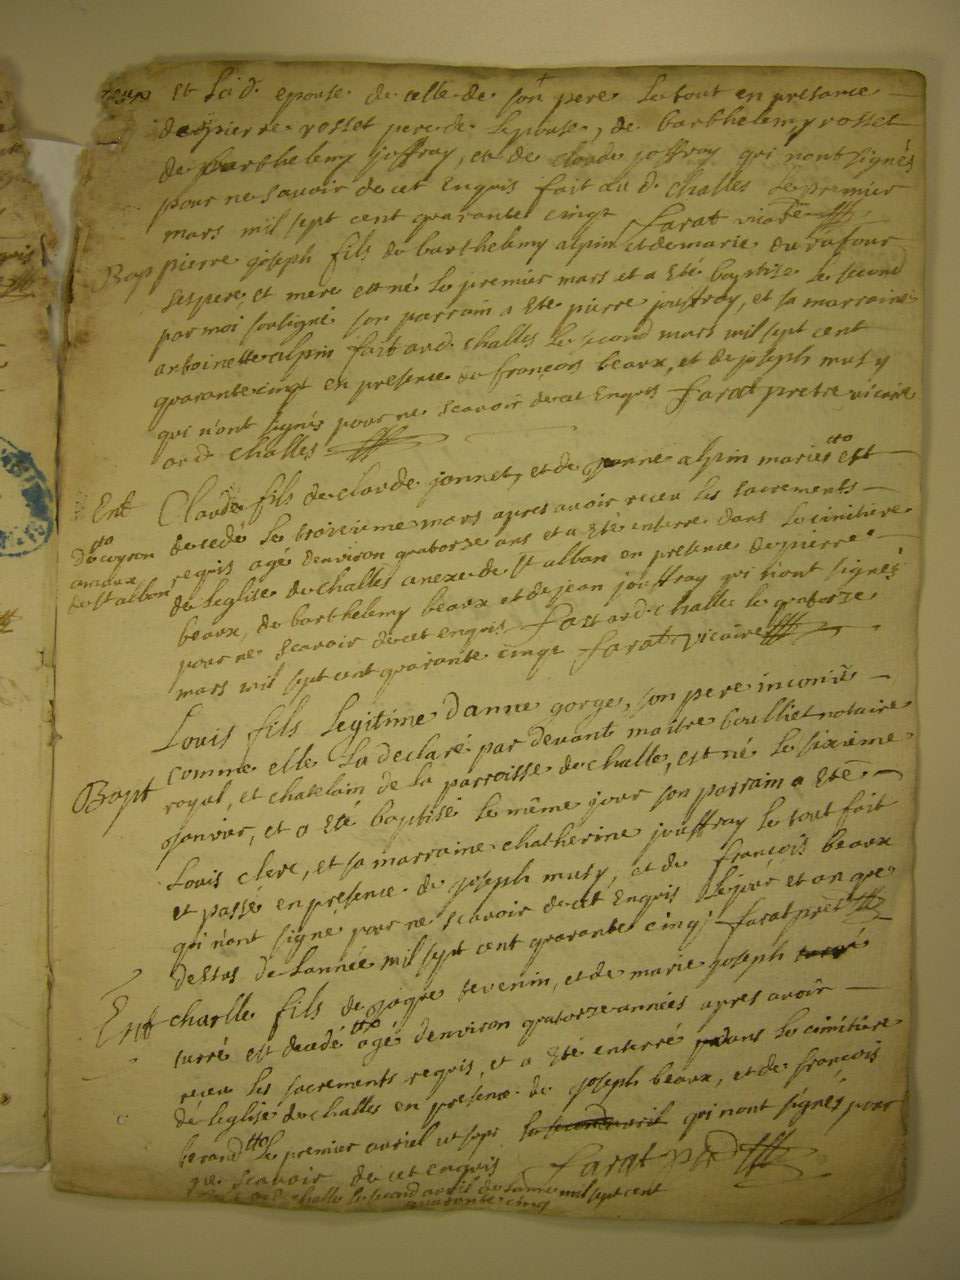 et lad. epouse de celle de son pere le tout en presance
de pierre rosset pere de lepouse, de barthelemy rosset
de barthelemy joffray, et de claude joffray qui nont signés
pour ne savoir de cet enquis fait aud. challes le premier
mars mil sept cent quarante cinq farat vicaire
Bap pierre joseph fils de barthelemy alpin et de marie du rafour
ses pere et mere est né le premier mars et a eté baptize le second
par moi sousigné son parrain a ete pierre jouffray, et sa marraine
antoinette alpin fait aud. challes le second mars mil sept cent
quarante cinq en presence de francois beaux, et de joseph musy
qui n'ont signés pour ne scavoir de cet enquis farat pretre vicaire
aud challes
Ent Claude fils de claude jonnet, et de jeanne alpin mariés est
decedé le troisieme mars apres avoir receu les sacrements
requis agé denviron quatorze ans et a eté enterré dans le cimitiere
de st albon
de leglise de challes anexe de st alban en presence de pierre
beaux, de barthelemy beaux et de jean jouffray qui n'ont signés
pour ne scavoir de cet enquis fait aud. challes le quatorze
mars mil sept cent quarante cinq farat vicaire
Louis fils legitime d'anne gorges, son pere inconu
comme elle la declaré par devant maitre boulliet notaire
Bapt royal, et chatelain de la parroisse de challe, est né le sixieme
janvier, et a eté baptisé le même jour son parrain a eté
Louis clerc, et sa marraine chatherine jouffray le tout fait
et passé en presence de joseph musy, et de francois beaux
qui n'ont signé pour ne scavoir de cet enquis le jour et an que
dessus de lannée mil sept cent quarante cinq farat pret
Ent charlle fils de tevenin, et de marie joseph
turré est decedé agé denviron quatorze années apres avoir
receu les sacrements requis, et a eté enterré dans le cimitiere
de leglise de challes en presence de joseph beaux, et de francois
le premier avriel qui nont signés pour
ne scavoir de cet enquis farat
challe le second avril de lanné mil sept cent
quarante cinq